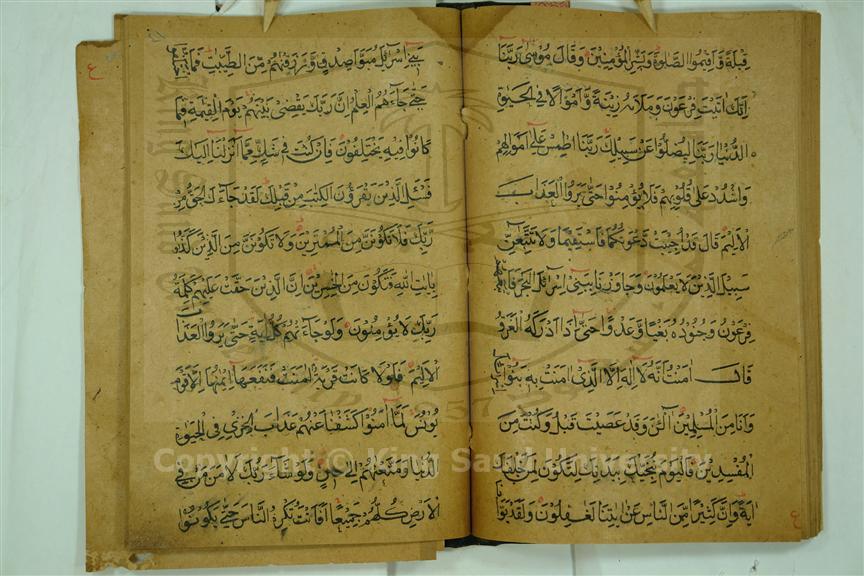 قِبْلَةً وَّاَقِيْمُوا الصَّلٰوةَ وَبَشِّرِ الْمُؤْمِنِيْنَ وَقَالَ مُوْسٰى رَبَّنَا
اِنَّكَ اٰتَيْتَ فِرْعَوْنَ وَمَلَاَهٗ زِيْنَةً وَّاَمْوَالًا فِى الْحَيٰوةِ
الدُّنْيَا رَبَّنَا لِيُضِلُّوْا عَنْ سَبِيْلِكَ رَبَّنَا اطْمِسْ عَلٰى اَمْوَالِهِمْ
وَاشْدُدْ عَلٰى قُلُوْبِهِمْ فَلَا يُؤْمِنُوْا حَتّٰى يَرَوُا الْعَذَابَ
الْاَلِيْمَ قَالَ قَدْ اُجِيْبَتْ دَّعْوَتُكُمَا فَاسْتَقِيْمَا وَلَا تَتَّبِعٰٓنِّ
سَبِيْلَ الَّذِيْنَ لَا يَعْلَمُوْنَ وَجَاوَزْنَا بِبَنِىْ اِسْرَآئِلَ الْبَحْرَ فَاَتْبَعَهُمْ
فِرْعَوْنُ وَجُنُوْدُهٗ بَغْيًا وَّعَدْوًا حَتّٰى اِذَا اَدْرَكَهُ الْغَرَقُ
قَالَ اٰمَنْتُ اَنَّهٗ لَا اِلٰهَ اِلَّا الَّذِىْ اٰمَنَتْ بِهٖ بَنُوْا اِسْرَآئِلَ
وَاَنَا مِنَ الْمُسْلِمِيْنَ آلْئٰنَ وَقَدْ عَصَيْتَ قَبْلُ وَكُنْتَ مِنَ
الْمُفْسِدِيْنَ فَالْيَوْمَ نُنَجِّيْكَ بِبَدَنِكَ لِتَكُوْنَ لِمَنْ خَلْفَكَ
اٰيَةً وَاِنَّ كَثِيْرًا مِّنَ النَّاسِ عَنْ اٰيٰتِنَا لَغٰفِلُوْنَ وَلَقَدْ بَوَّاْنَا
بَنِىْ اِسْرَآئِلَ مُبَوَّاَ صِدْقٍ وَّرَزَقْنٰهُمْ مِّنَ الطَّيِّبٰتِ فَمَا اخْتَلَفُوْا
حَتّٰى جَآءَهُمُ الْعِلْمُ اِنَّ رَبَّكَ يَقْضِىْ بَيْنَهُمْ يَوْمَ الْقِيٰمَةِ فِيْمَا
كَانُوْا فِيْهِ يَخْتَلِفُوْنَ فَاِنْ كُنْتَ فِىْ شَكٍّ مِّمَّا اَنْزَلْنَا اِلَيْكَ
فَسْئَلِ الَّذِيْنَ يَقْرَؤُنَ الْكِتٰبَ مِنْ قَبْلِكَ لَقَدْ جَآءَكَ الْحَقُّ مِنْ
رَّبِّكَ فَلَا تَكُوْنَنَّ مِنَ الْمُمْتَرِيْنَ وَلَا تَكُوْنَنَّ مِنَ الَّذِيْنَ كَذَّبُوْا
بِاٰيٰتِ اللّٰهِ فَتَكُوْنَ مِنَ الْخٰسِرِيْنَ اِنَّ الَّذِيْنَ حَقَّتْ عَلَيْهِمْ كَلِمَةُ
رَبِّكَ لَا يُؤْمِنُوْنَ وَلَوْ جَآءَتْهُمْ كُلُّ اٰيَةٍ حَتّٰى يَرَوُا الْعَذَابَ
الْاَلِيْمَ فَلَوْلَا كَانَتْ قَرْيَةٌ اٰمَنَتْ فَنَفَعَهَا اِيْمٰنُهَا اِلَّا قَوْمَ
يُوْنُسَ لَمَّا اٰمَنُوْا كَشَفْنَا عَنْهُمْ عَذَابَ الْخِزْىِ فِى الْحَيٰوةِ
الدُّنْيَا وَمَتَّعْنٰهُمْ اِلٰى حِيْنٍ وَلَوْ شَآءَ رَبُّكَ لَاٰمَنَ مَنْ فِى
الْاَرْضِ كُلُّهُمْ جَمِيْعًا اَفَاَنْتَ تُكْرِهُ النَّاسَ حَتّٰى يَكُوْنُوْا
Copyright © King Saud University
1957